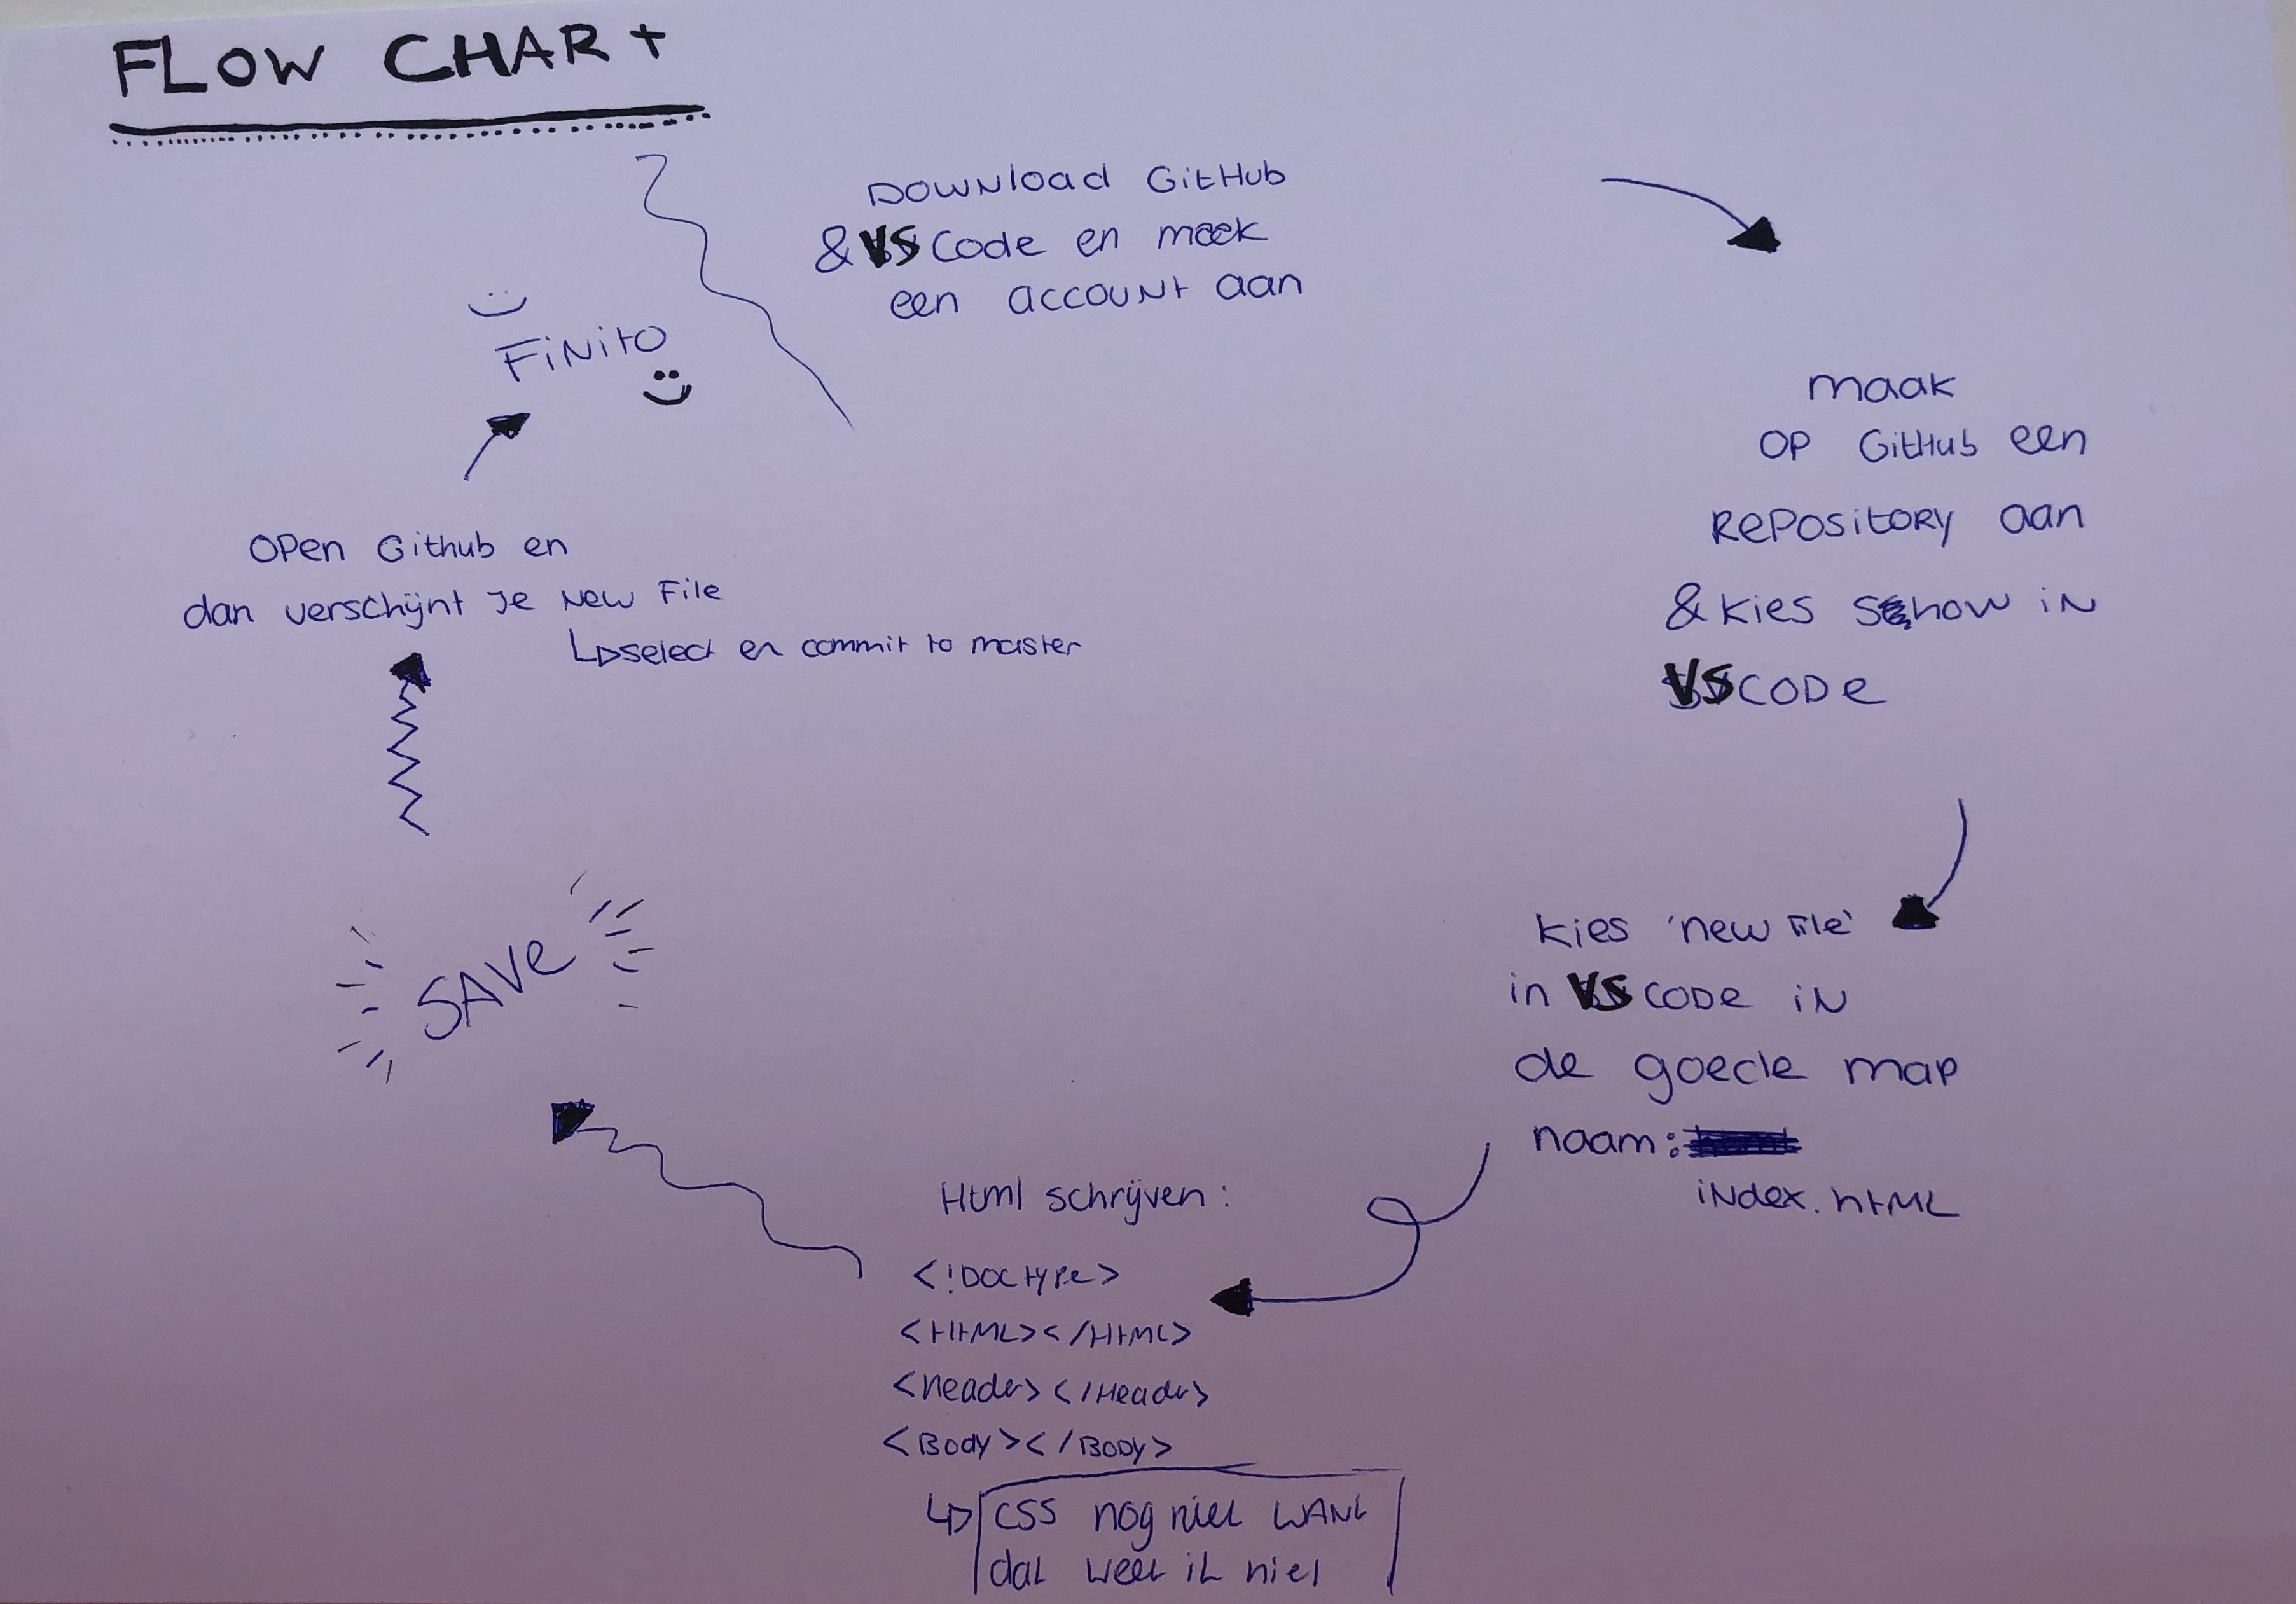 FLOW CHART
DOWNload GitHub
& VS Code en maak
een account aan
maak
op GitHub een
Repository aan
& kies show in
VSCODE
kies 'new file'
in VSCODE in
de goede map
naam:
index.html
Html schrijven:
<!Doctype>
<HTML></HTML>
<header></Header>
<Body></Body>
CSS nog niet WANt
dat weet ik niet
SAVe
Open Github en
dan verschijnt je New File
select en commit to master
FiNito